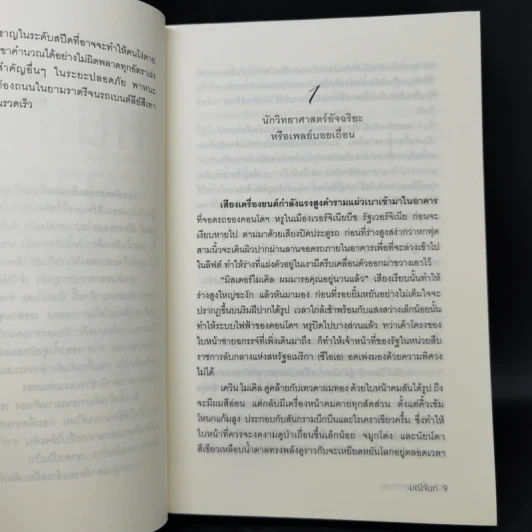 ชาญในระดับสปีดที่อาจจะทำให้คนโง่ตาย
ขาคำนวณได้อย่างไม่ผิดพลาดทุกอัตราเร่ง
สำคัญอื่นๆ ในระยะปลอดภัย พาหนะ
ท้องถนนในยามราตรีจนรถเบนต์ลีย์สีเทา
รวดเร็ว
1
นักวิทยาศาสตร์อัจฉริยะ
หรือเพลย์บอยเถื่อน
เสียงเครื่องยนต์กำลังแรงสูงคำรามแผ่วเบาเข้ามาในอาคาร
ที่จอดรถของคอนโดฯ หรูในเมืองเวอร์จิเนียบีช รัฐเวอร์จิเนีย ก่อนจะ
เงียบหายไป ตามมาด้วยเสียงปิดประตูรถ ก่อนที่ร่างสูงสง่ากว่าหกฟุต
สามนิ้วจะเดินผิวปากผ่านลานจอดรถภายในอาคารเพื่อที่จะล่วงเข้าไป
ในลิฟต์ ทำให้ร่างที่แฝงตัวอยู่ในเงามืดรีบเคลื่อนตัวออกมาขวางเอาไว้
“มิสเตอร์ไมเคิล ผมมารอคุณอยู่นานแล้ว” เสียงเรียบนั้นทำให้
ร่างสูงใหญ่ชะงัก แล้วหันมามอง ก่อนที่รอยยิ้มหยันอย่างไม่เต็มใจจะ
ปรากฏขึ้นบนริมฝีปากได้รูป เวลาใกล้เช้าพร้อมกับแสงสว่างเล็กน้อยนั้น
ทำให้ระบบไฟฟ้าของคอนโดฯ หรูปิดไปบางส่วนแล้ว ทว่าเค้าโครงของ
ใบหน้าชายฉกรรจ์ที่เพิ่งเดินมาถึง ก็ทำให้เจ้าหน้าที่ของรัฐในหน่วยสืบ
ราชการลับกลางแห่งสหรัฐอเมริกา (ซีไอเอ) อดเพ่งมองด้วยความพิศวง
ไม่ได้
เควิน ไมเคิล ดูคล้ายกับเทวดาผมทอง ด้วยใบหน้าคมสันได้รูป ถึง
จะมีผมสีอ่อน แต่กลับมีเครื่องหน้าคมคายทุกสัดส่วน ตั้งแต่คิ้วเข้ม
โหนกแก้มสูง ประกอบกับสันกรามบึกบึนและไรเคราเขียวครึ้ม ซึ่งทำให้
ใบหน้าที่ควรจะงดงามดูป่าเถื่อนขึ้นเล็กน้อย จมูกโด่ง และนัยน์ตา
สีเขียวเหลือบน้ำตาลทรงพลังดูราวกับจะเหยียดหยันโลกอยู่ตลอดเวลา
มณีจันท์ 9